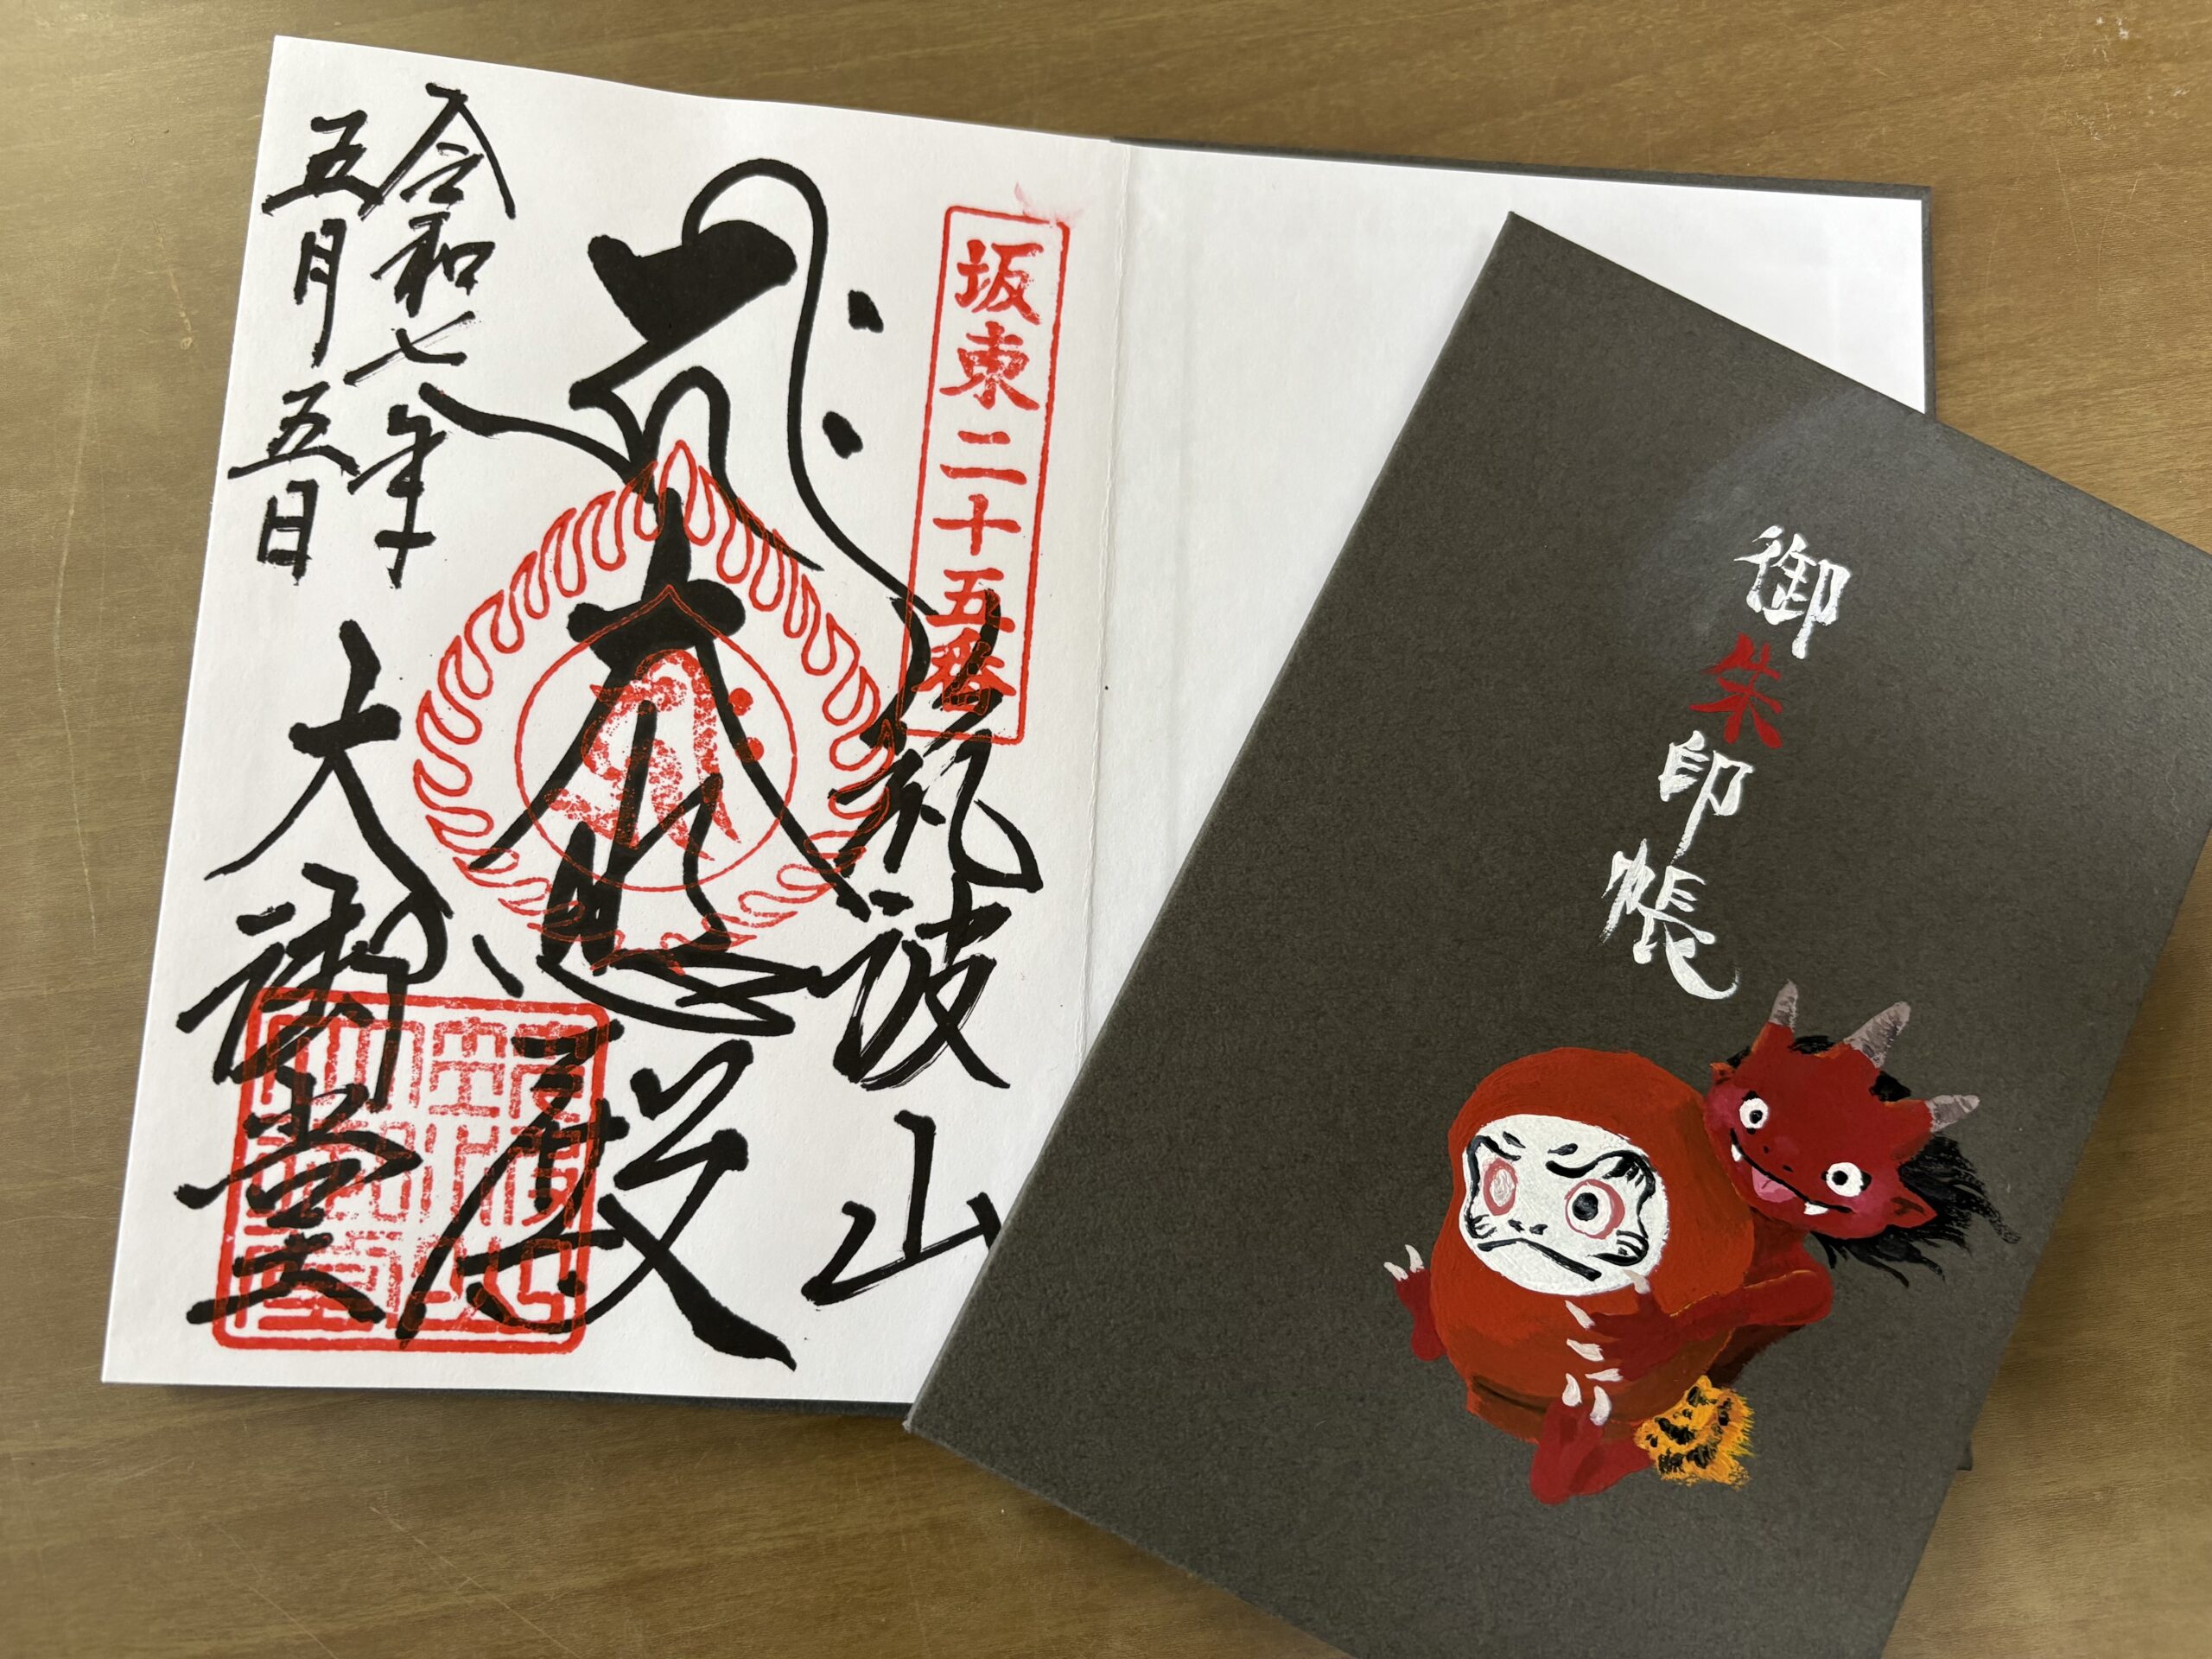 坂東二十五番
筑波山
大悲殿
大御堂
令和七年
五月五日
御朱印帳